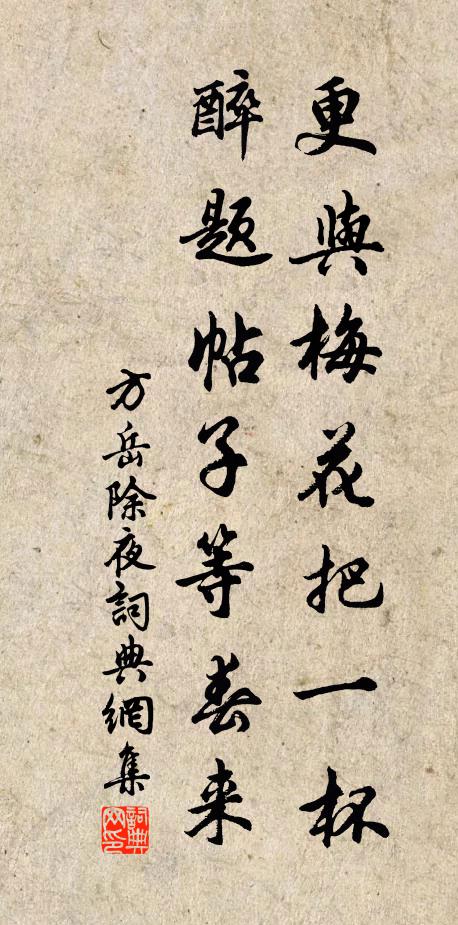 更與梅花把一杯
醉题帖子等春来
方岳除夜詞典網集
詞典網印